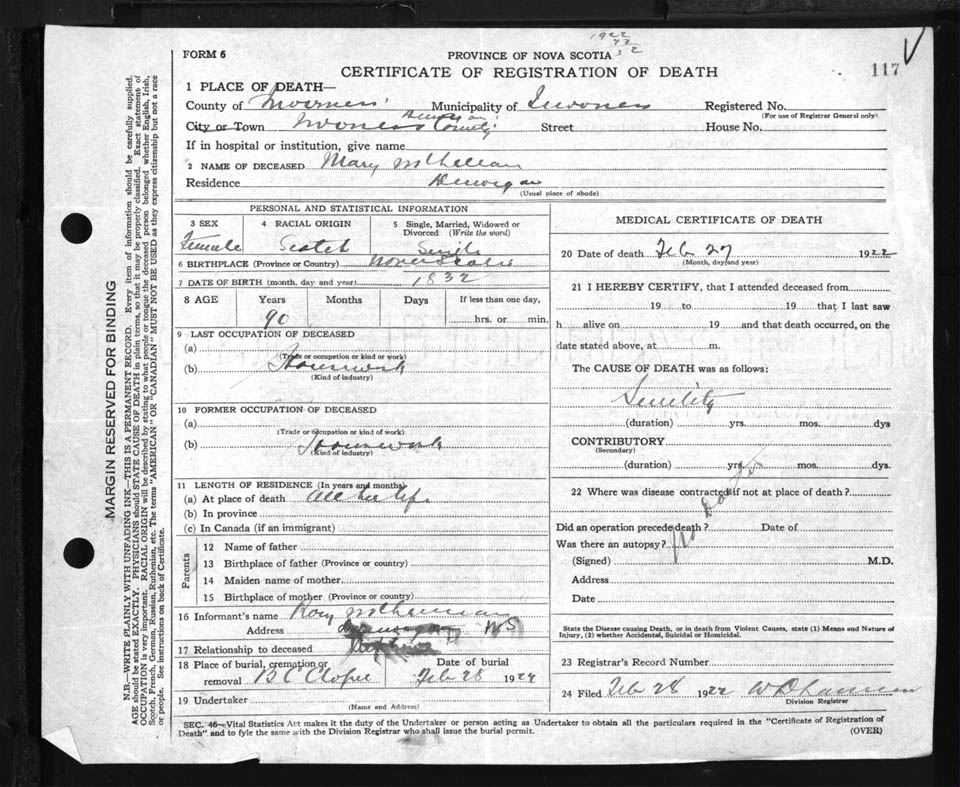 1922
FORM 6
PROVINCE OF NOVA SCOTIA
117
CERTIFICATE OF REGISTRATION OF DEATH
1 PLACE OF DEATH—
County of Inverness Municipality of Inverness Registered No.
(For use of Registrar General only)
City or Town Inverness County Street House No.
If in hospital or institution, give name
2 NAME OF DECEASED Mary McLellan
Residence Dunvegan
(Usual place of abode)
PERSONAL AND STATISTICAL INFORMATION
3 SEX 4 RACIAL ORIGIN 5 Single, Married, Widowed or Divorced (Write the word)
Female Scotch Single
6 BIRTHPLACE (Province or Country) Nova Scotia
7 DATE OF BIRTH (month, day and year) 1832
8 AGE Years Months Days If less than one day,
90 hrs. or min.
9 LAST OCCUPATION OF DECEASED
(a)
(Trade or occupation or kind or work)
(b) Housework
(Kind of industry)
10 FORMER OCCUPATION OF DECEASED
(a)
(Trade or occupation or kind of work)
(b) Housework
(Kind of industry)
11 LENGTH OF RESIDENCE (In years and months)
(a) At place of death All her life
(b) In province
(c) In Canada (if an immigrant)
Parents
12 Name of father
13 Birthplace of father (Province or country)
14 Maiden name of mother
15 Birthplace of mother (Province or country)
16 Informant's name Rory McLennan
Address NS
17 Relationship to deceased
18 Place of burial, cremation or removal B C Date of burial Feb 28 1922
19 Undertaker
(Name and Address)
MEDICAL CERTIFICATE OF DEATH
20 Date of death Feb 27 1922
(Month, day and year)
21 I HEREBY CERTIFY, that I attended deceased from
19 to 19 that I last saw
h alive on 19 and that death occurred, on the
date stated above, at m.
The CAUSE OF DEATH was as follows:
Senility
(duration) yrs. mos. dys
CONTRIBUTORY
(Secondary)
(duration) yrs. mos. dys.
22 Where was disease contracted if not at place of death?
Did an operation precede death? Date of
Was there an autopsy? No
(Signed) M.D.
Address
Date
State the Disease causing Death, or in death from Violent Causes, state (1) Means and Nature of
Injury, (2) whether Accidental, Suicidal or Homicidal.
23 Registrar's Record Number
24 Filed Feb 28 1922
Division Registrar
SEC. 46—Vital Statistics Act makes it the duty of the Undertaker or person acting as Undertaker to obtain all the particulars required in the "Certificate of Registration of
Death" and to fyle the same with the Division Registrar who shall issue the burial permit.
(OVER)
MARGIN RESERVED FOR BINDING
N.B.—WRITE PLAINLY WITH UNFADING INK—THIS IS A PERMANENT RECORD. Every item of information should be carefully supplied.
AGE should be stated EXACTLY. PHYSICIANS should STATE CAUSE OF DEATH in plain terms, so that it may be properly classified. Exact statement of
OCCUPATION is very important. RACIAL ORIGIN will be described by stating to what people or tongue the deceased person belonged whether English, Irish,
Scotch, French, German, Russian, Ruthenian, etc. The terms "AMERICAN" OR "CANADIAN" MUST NOT BE USED as they express citizenship but not a race
or people. See instructions on back of Certificate.